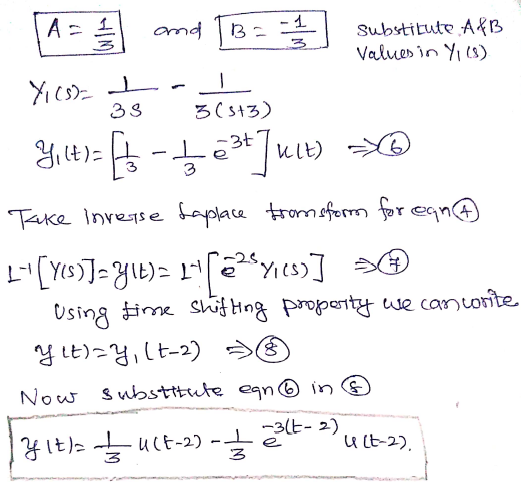 A = 1/3 and B = -1/3 substitute A&B
values in Y₁(s)
Y₁(s) = 1/3s - 1/3(s+3)
y₁(t) = [1/3 - 1/3 e^-3t] u(t) ⇒ ⑥
Take Inverse Laplace transform for eqn ④
L⁻¹[Y(s)] = y(t) = L⁻¹[e^-2s Y₁(s)] ⇒ ⑦
Using time shifting property we can write
y(t) = y₁(t-2) ⇒ ⑧
Now substitute eqn ⑥ in ⑧
y(t) = 1/3 u(t-2) - 1/3 e^-3(t-2) u(t-2).